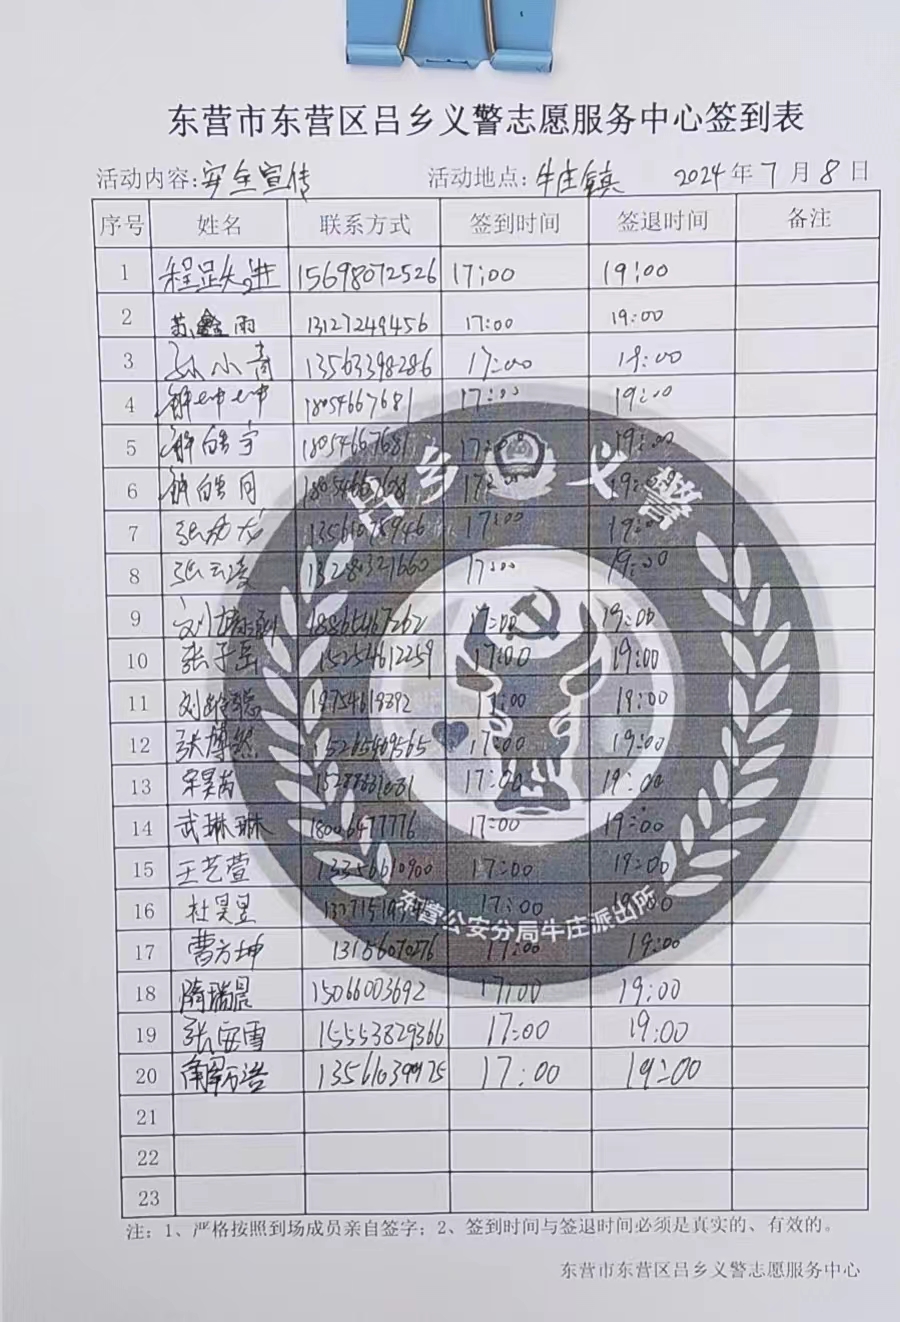 东营市东营区吕乡义警志愿服务中心签到表
活动内容:安全宣传 活动地点:牛庄镇 2024年7月8日
序号 姓名 联系方式 签到时间 签退时间 备注
1 15698072526 17:00 19:00
2 苏鑫雨 13127249456 17:00 19:00
3 孙小奇 13563398286 17:00 19:00
4 18054667681 17:00 19:00
5 18054667681 17:00 19:00
6 17:00 19:00
7 17:00 19:00
8 张云凌 17:00 19:00
9 18865467262 17:00 19:00
10 张子岳 15254612259 17:00 19:00
11 17:00 19:00
12 张博然 15265409565 17:00 19:00
13 17:00 19:00
14 武琳琳 18006477776 17:00 19:00
15 王艺萱 13356610900 17:00 19:00
16 杜昊昱 17:00 19:00
17 曹方坤 13156070276 17:00 19:00
18 隋瑞晨 15066003692 17:00 19:00
19 张安雪 15553829366 17:00 19:00
20 17:00 19:00
21
22
23
吕乡义警
东营公安分局牛庄派出所
注: 1、严格按照到场成员亲自签字; 2、签到时间与签退时间必须是真实的、有效的。
东营市东营区吕乡义警志愿服务中心